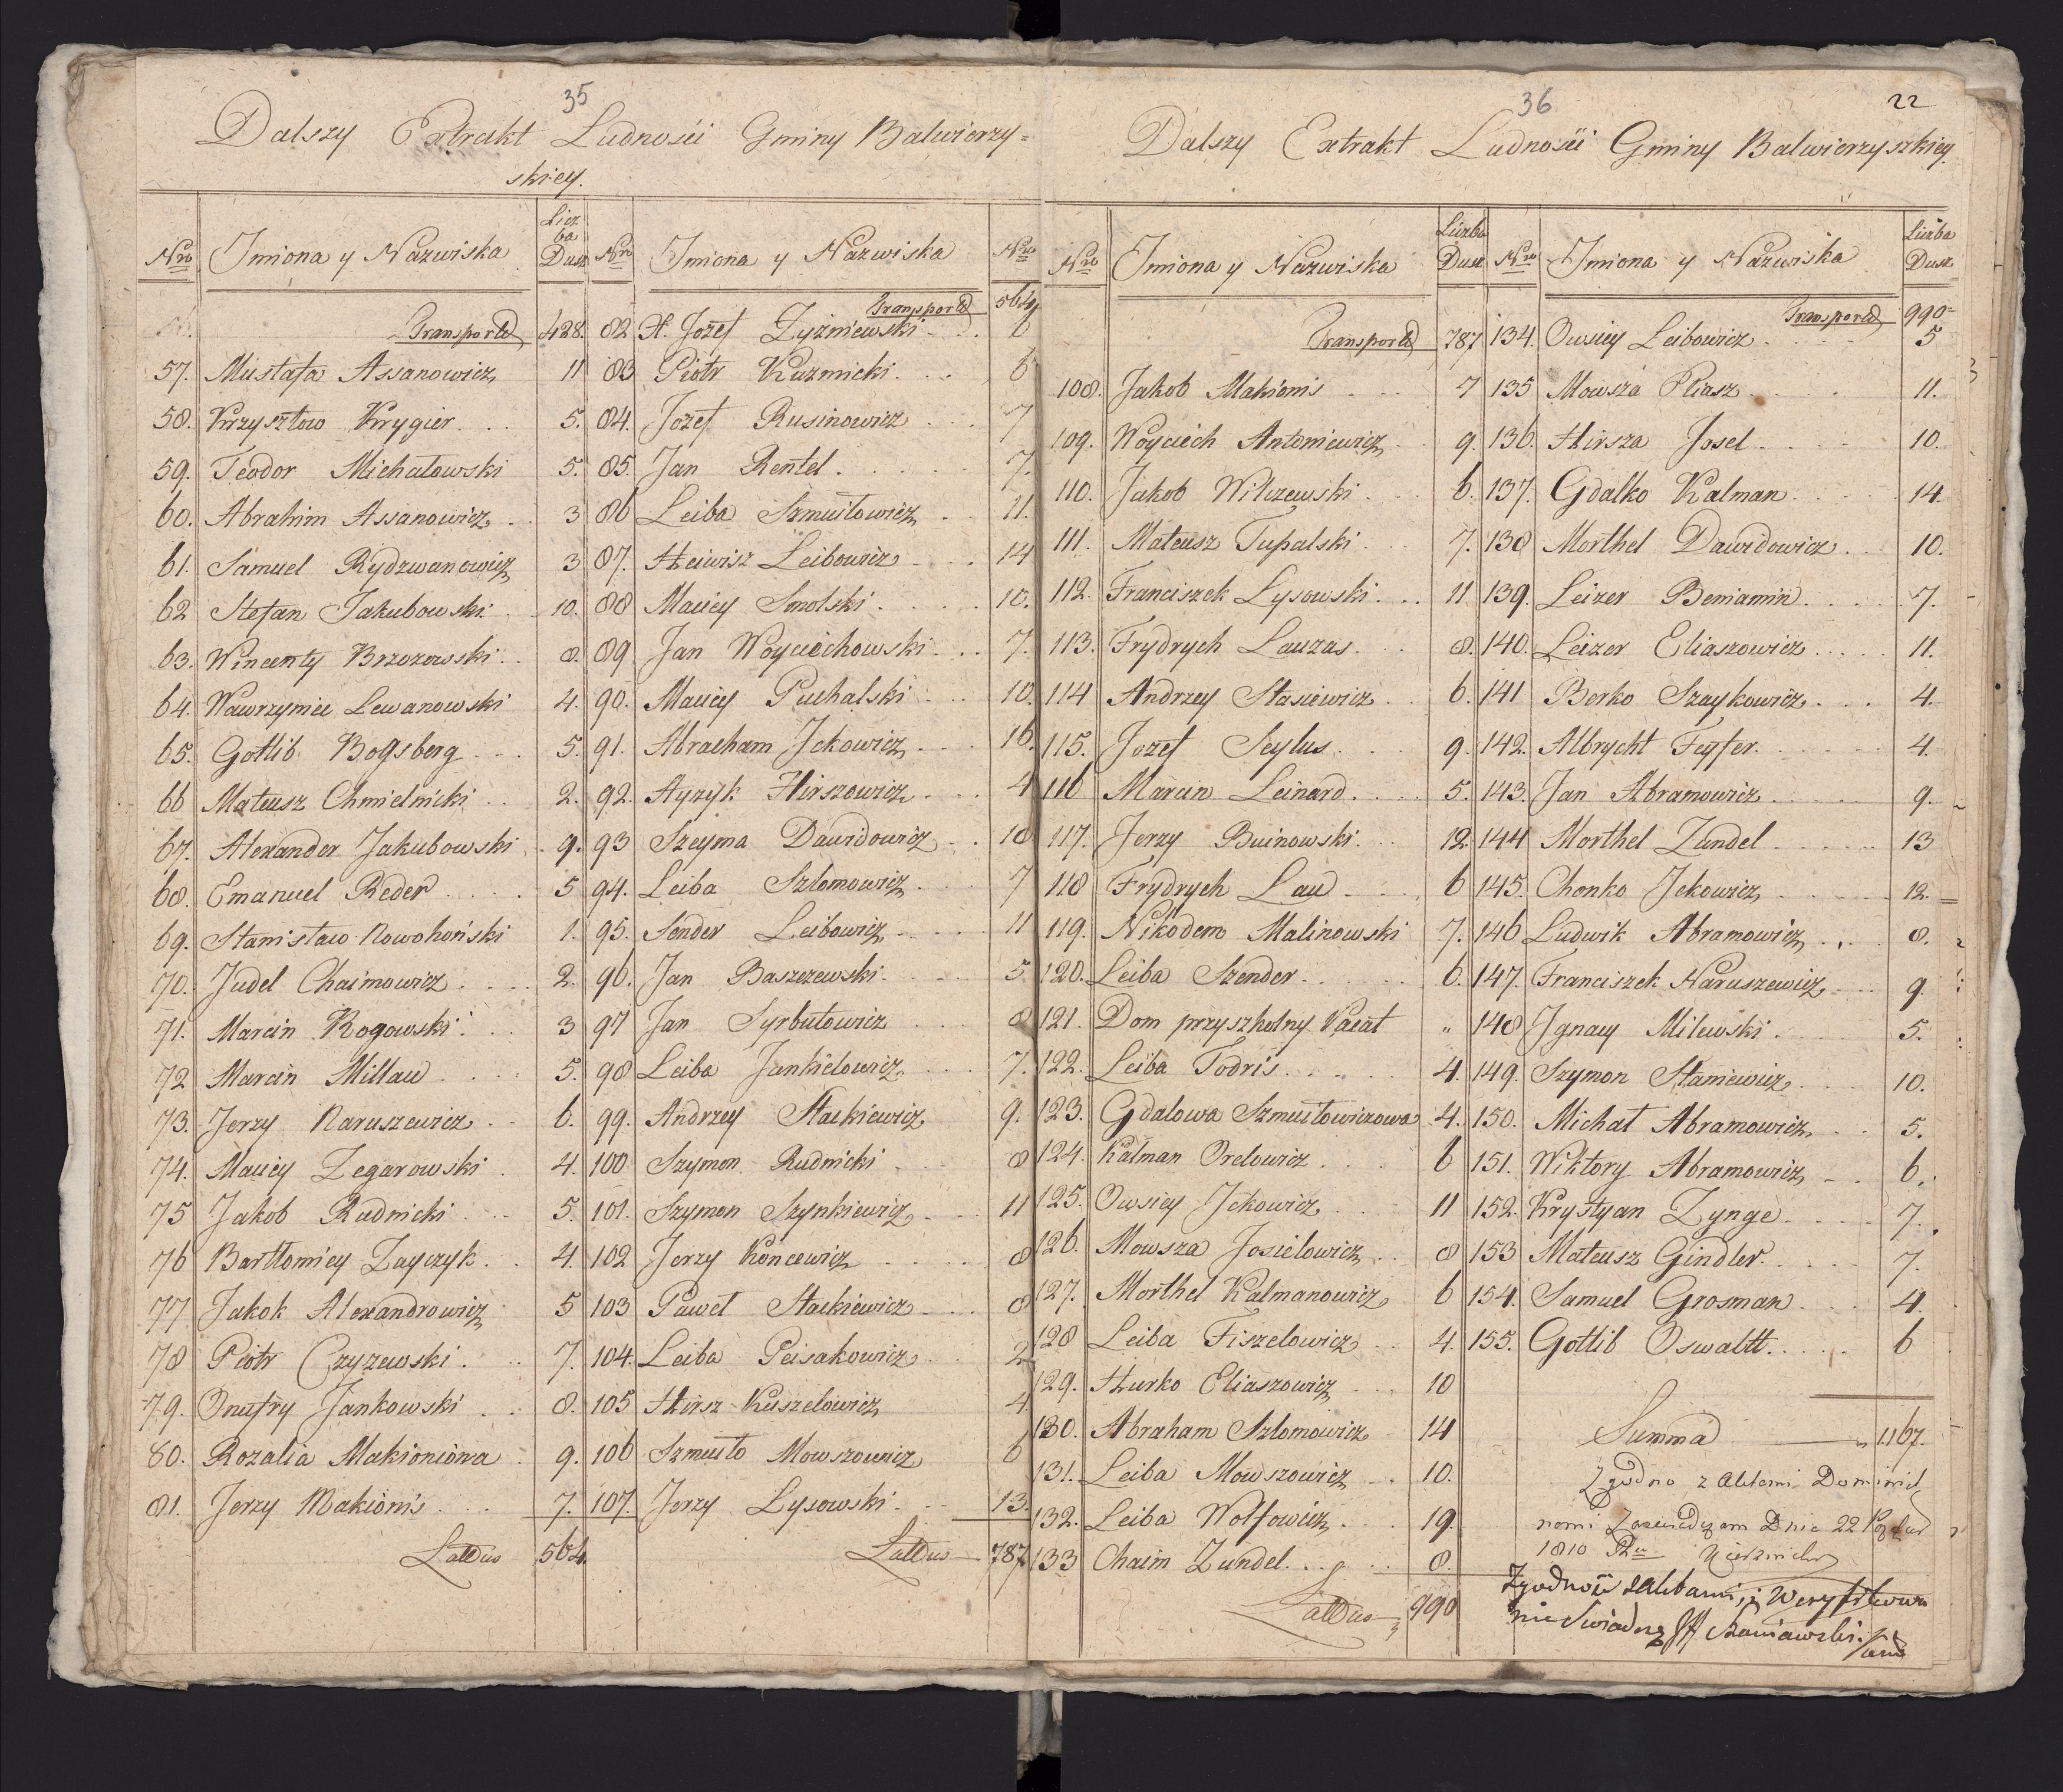 35
Dalszy Extrakt Ludności Gminy Balwierzy=
skiey.
Nro Imiona y Nazwiska Licz ba Dusz
Transport 428.
57. Mustafa Assanowicz 11
58. Krzysztow Krygier 5.
59. Teodor Michałowski 5.
60. Abrahim Assanowicz 3
61. Samuel Rydzwanowicz 3
62 Stefan Jakubowski 10.
63. Wincenty Brzozowski 8.
64. Wawrzyniec Lewanowski 4.
65. Gotlib Bogsberg 5.
66 Mateusz Chmielnicki 2.
67. Alexander Jakubowski 9.
68. Emanuel Reder 5
69. Stanisław Nowohoński 1.
70. Judel Chaimowicz 2.
71. Marcin Rogowski 3
72 Marcin Millau 5.
73. Jerzy Naruszewicz 6.
74. Maciey Zegarowski 4.
75 Jakob Rudnicki 5.
76 Bartłomiey Zayczyk 4.
77 Jakok Alexandrowicz 5
78 Piotr Czyzewski 7.
79. Onufry Jankowski 8.
80. Rozalia Makioniowa 9.
81. Jerzy Makionis 7.
Lattus 564.
Nro Imiona y Nazwiska Nro
Transport 564
82 X. Jozef Zyżniewski 6
83 Piotr Kuzmicki 6
84. Jozef Rusinowicz 7
85. Jan Rentel 7.
86 Leiba Szmułowicz 11.
87. Heiwisz Leibowicz 14
88 Maciey Smolski 10.
89 Jan Woyciechowski 7.
90. Maciey Puchalski 10.
91. Abracham Jckowicz 16.
92. Ayzyk Hirszowicz 4
93 Szeyma Dawidowicz 18
94. Leiba Szlomowicz 7
95. Sender Leibowicz 11
96. Jan Baszezewski 5
97 Jan Syrbutowicz 8
98 Leiba Jankielowicz 7.
99. Andrzey Stackiewicz 9.
100 Szymon Rudnicki 8
101. Szymon Szynkiewicz 11
102 Jerzy Koncewicz 8
103 Paweł Stackiewicz 8
104. Leiba Peisakowicz 2
105 Hirsz Kuszelowicz 4
106 Szmuło Mowszowicz 6
107. Jerzy Lysowski 13.
Lattus 787
36
22
Dalszy Extrakt Ludności Gminy Balwierzyszkiey
Nro Imiona y Nazwiska Liczba Dusz
Transport 787
108. Jakob Makionis 7
109. Woyciech Antoniewicz 9.
110. Jakob Wilczewski 6.
111. Mateusz Tupalski 7.
112. Franciszek Lysowski 11
113. Frydrych Lauzas 8.
114 Andrzey Stasiewicz 6.
115. Jozef Seylus 9.
116 Marcin Leinard 5.
117. Jerzy Buinowski 12.
118 Frydrych Lau 6
119. Nikodem Malinowski 7.
120. Leiba Szender 6.
121. Dom przyszkolny Vacat "
122. Leiba Todris 4.
123. Gdalowa Szmułowiczowa 4.
124. Kalman Orelowicz 6
125. Owsiey Jckowicz 11
126. Mowsza Josielowicz 8
127. Morthel Kalmanowicz 6
128 Leiba Fiszelowicz 4.
129. Hurko Eliaszowicz 10
130. Abraham Szlomowicz 14
131. Leiba Mowszowicz 10.
132. Leiba Wolfowicz 19.
133 Chaim Zundel 8.
Lattus 990
Nro Imiona y Nazwiska Liczba Dusz
Transport 990=
134. Owsiey Leibowicz 5
135 Mowsza Pliasz 11.
136. Hirsza Josel 10.
137. Gdalko Kalman 14.
138 Morthel Dawidowicz 10.
139. Leizer Beniamin 7.
140. Leizer Eliaszowicz 11.
141 Berko Szaykowicz 4.
142. Albrycht Feyfer 4.
143. Jan Abramowicz 9.
144 Morthel Zundel 13
145. Chonko Jckowicz 12.
146 Ludwik Abramowicz 8.
147. Franciszek Naruszewicz 9.
148 Jgnacy Milewski 5.
149. Szymon Staniewicz 10.
150. Michał Abramowicz 5.
151. Wiktory Abramowicz 6.
152. Krystyan Zynge 7.
153 Mateusz Gindler 7.
154. Samuel Grosman 4.
155. Gotlib Oswaltt 6
Summa 1167.
Zgodno z Aktami Dominik
nemi Zaswiadczam Dnia 22
1810 Ru
Zgodność z Aktami, i Weryfikowa
nie Swiadczę